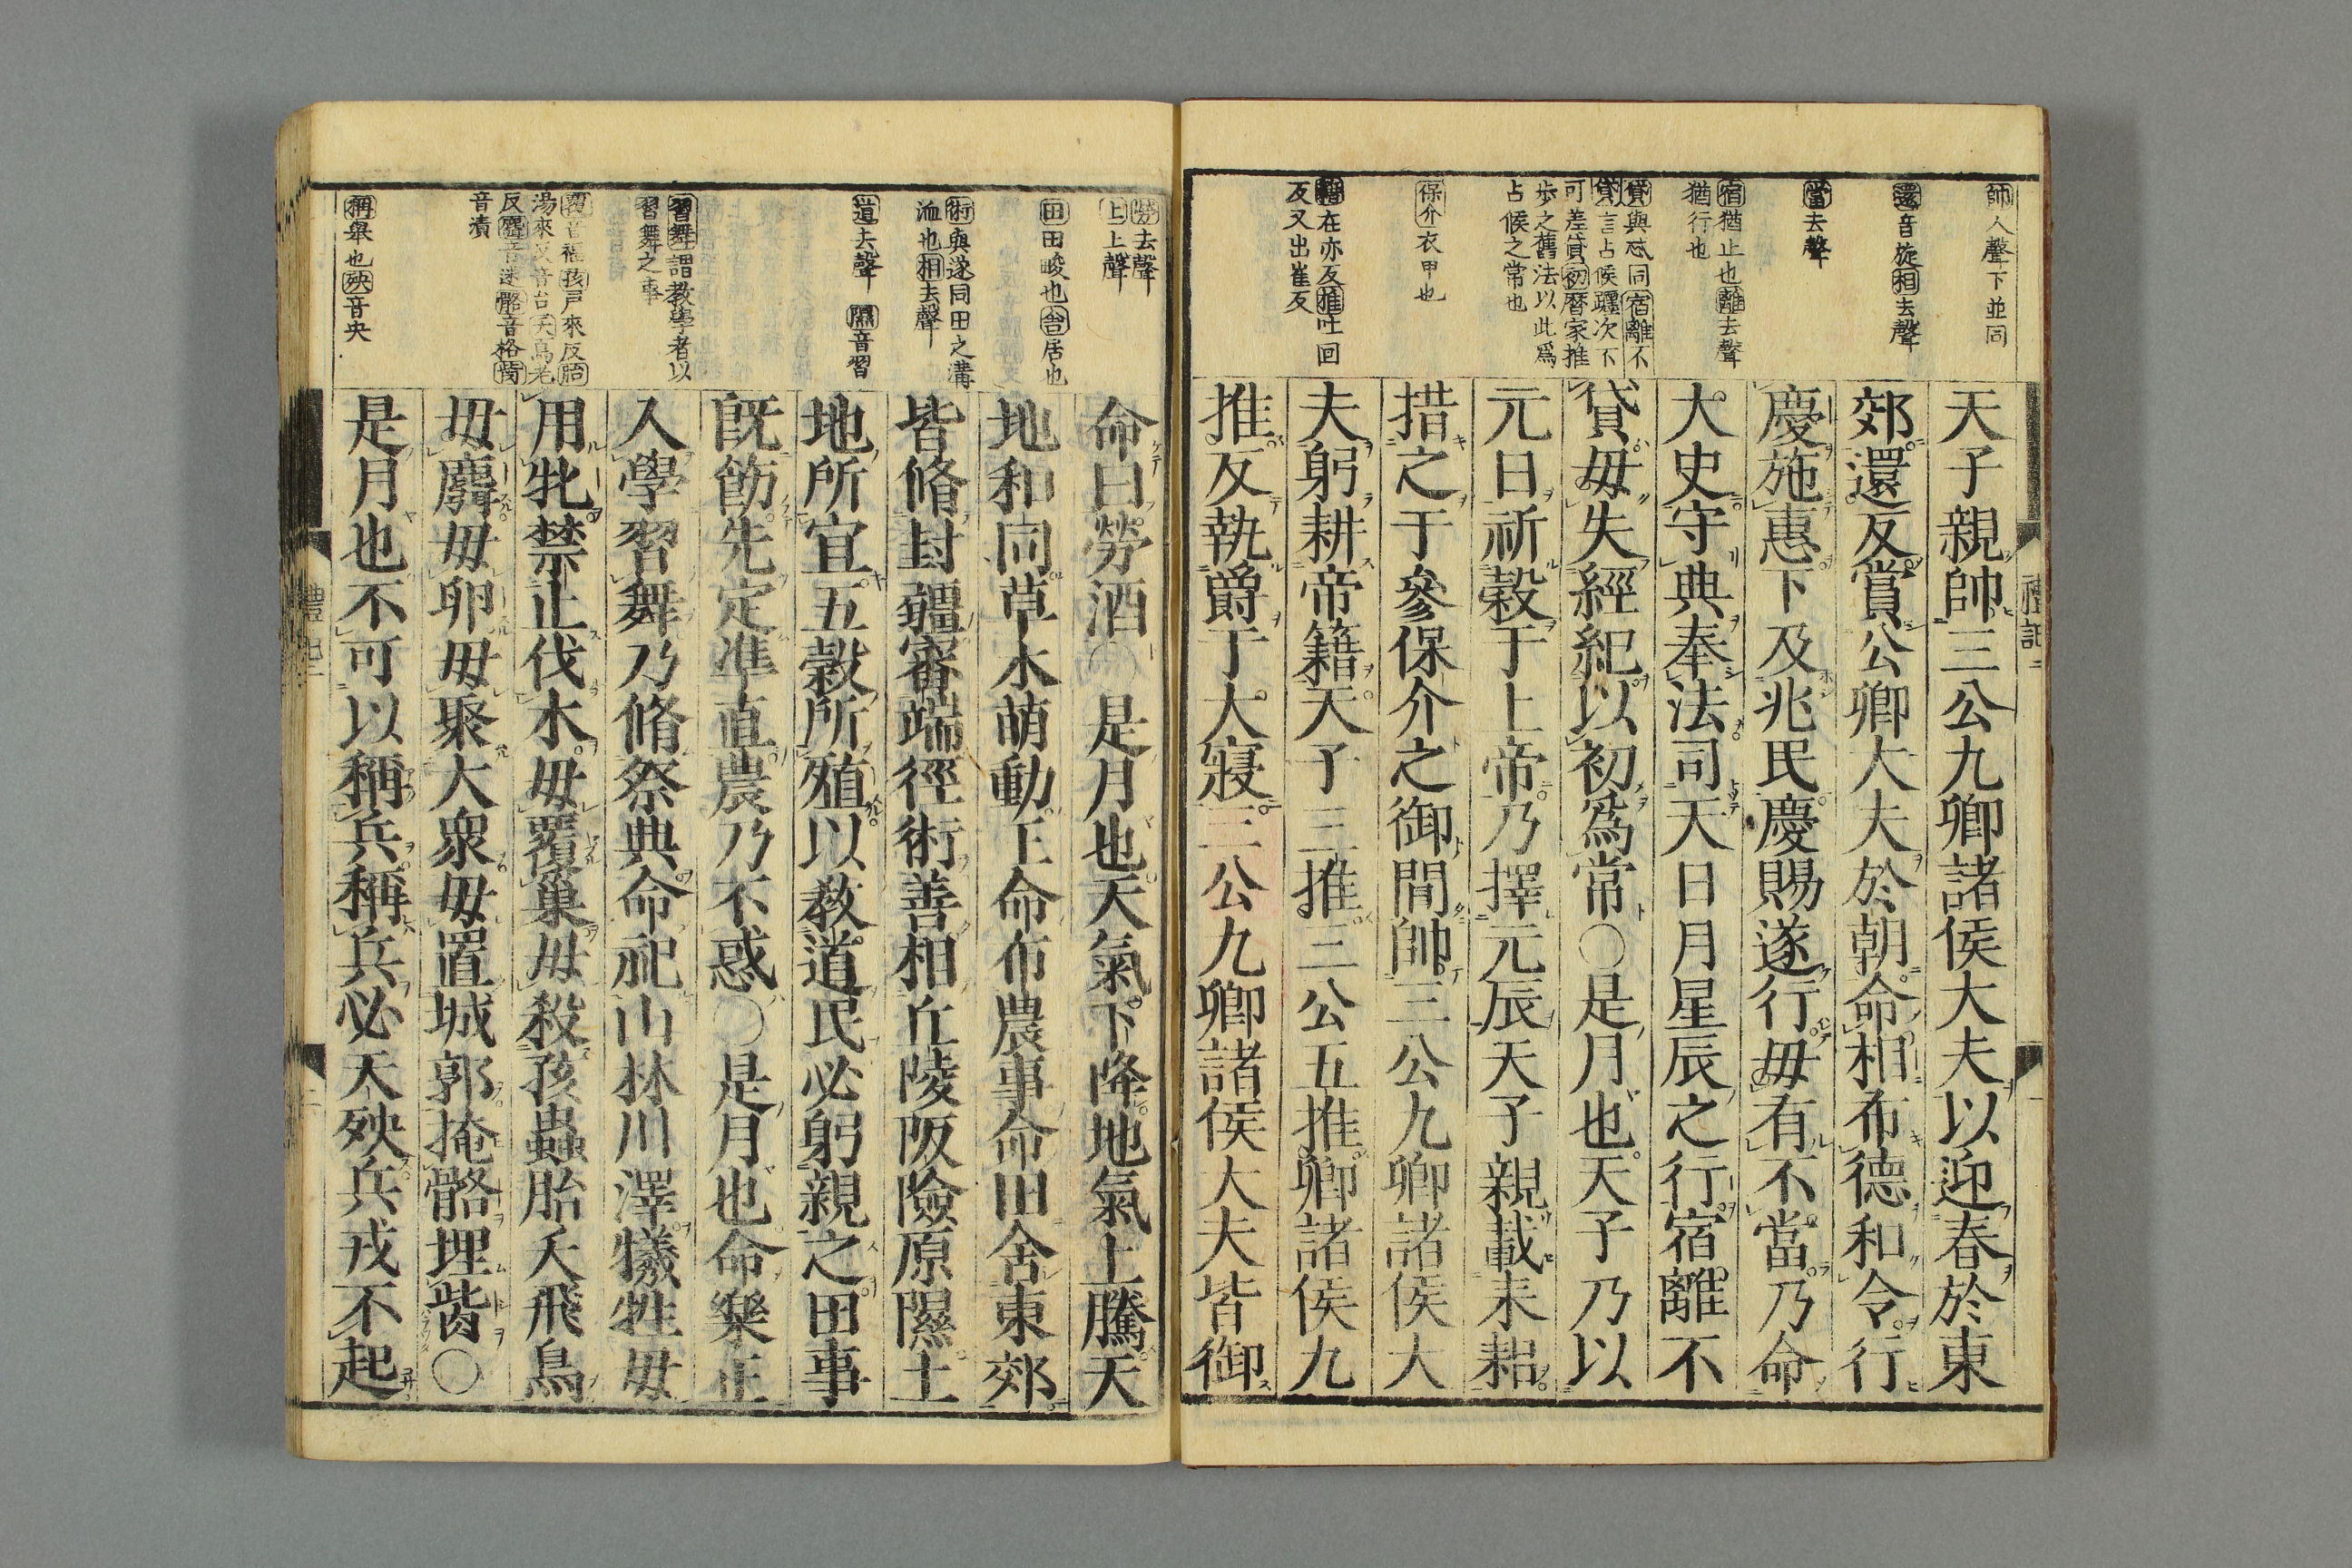 帥入聲下並同
還音旋相去聲
當去聲
宿猶止也離去聲
猶行也
貸與忒同宿離不
貸言占候躔次不
可差貸初曆家推
步之舊法以此爲
占候之常也
保介衣甲也
籍在亦反推吐回
反又出崔反
天子親帥三公九卿諸侯大夫以迎春於東
郊還反賞公卿大夫於朝命相布德和令行
慶施惠下及兆民慶賜遂行毋有不當乃命
大史守典奉法司天日月星辰之行宿離不
貸毋失經紀以初爲常○是月也天子乃以
元日祈穀于上帝乃擇元辰天子親載耒耜
措之于參保介之御間帥三公九卿諸侯大
夫躬耕帝籍天子三推三公五推卿諸侯九
推反執爵于大寢三公九卿諸侯大夫皆御
禮記二
勞去聲
上上聲
田田畯也舍居也
術與遂同田之溝
洫也相去聲
道去聲 隰音習
習舞謂教學者以
習舞之事
覆音福孩戸來反胎
湯來反音台夭烏老
反麛音迷骼音格胔
音漬
稱舉也殃音央
命曰勞酒○是月也天氣下降地氣上騰天
地和同草木萌動王命布農事命田舍東郊
皆脩封疆審端徑術善相丘陵阪險原隰土
地所宜五穀所殖以教道民必躬親之田事
旣飭先定準直農乃不惑○是月也命樂正
入學習舞乃脩祭典命祀山林川澤犧牲毋
用牝禁止伐木毋覆巢毋殺孩蟲胎夭飛鳥
毋麛毋卵毋聚大衆毋置城郭掩骼埋胔○
是月也不可以稱兵稱兵必天殃兵戎不起
禮記二